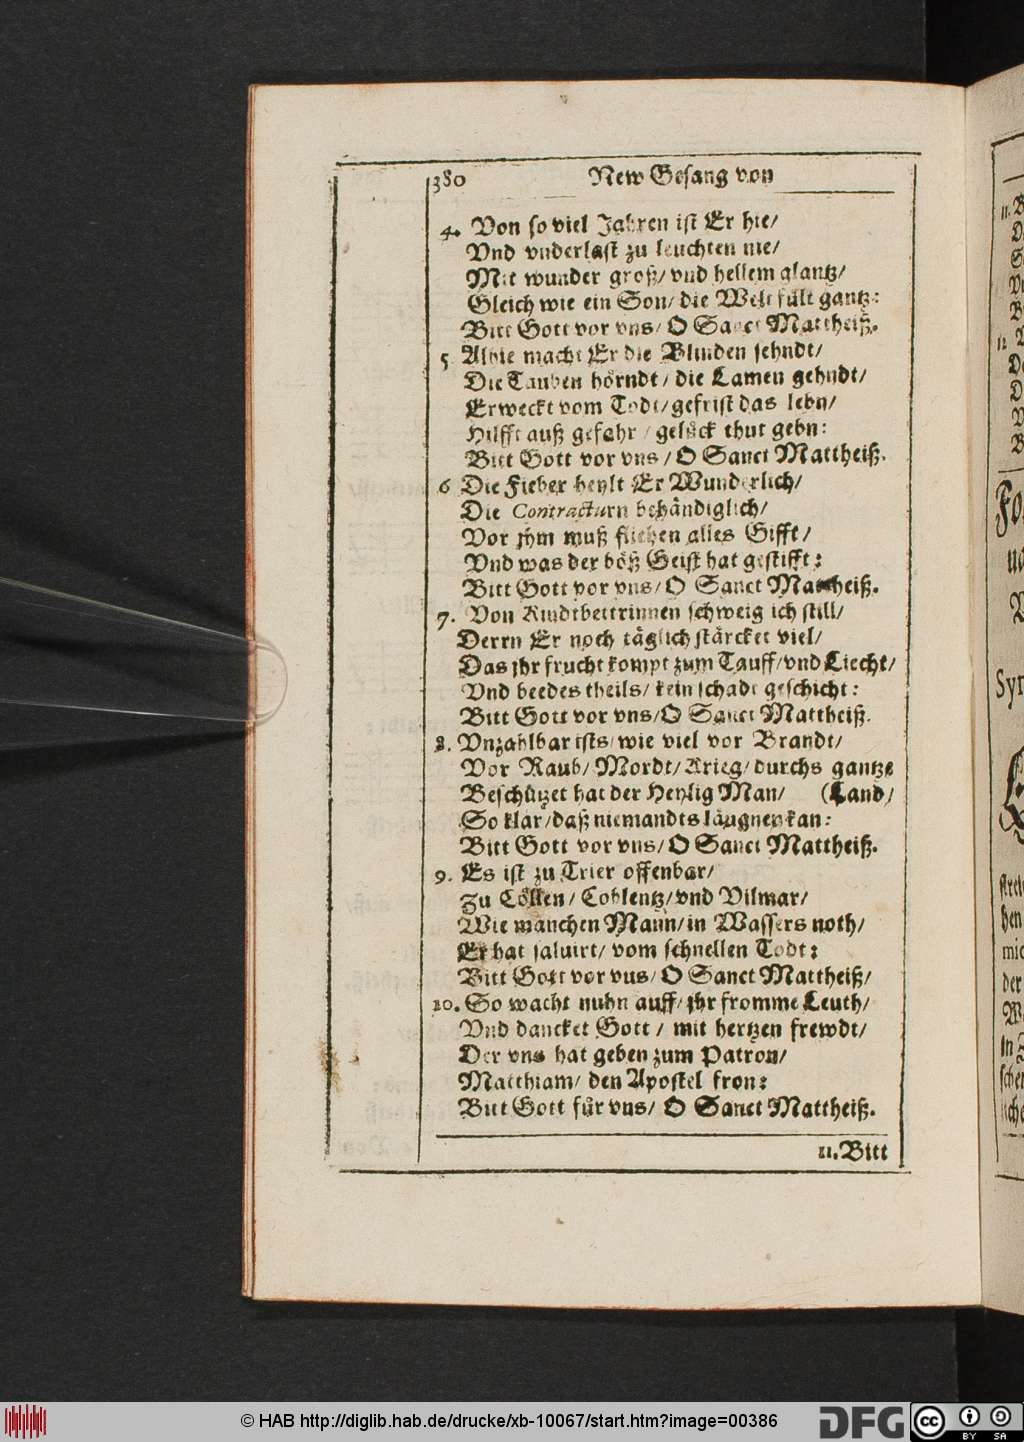 380 New Gesang von
4. Von so viel Jahren ist Er hie/
Vnd vnderlast zu leuchten nie/
Mit wunder groß/ vnd hellem glantz/
Gleich wie ein Son/ die Welt fült gantz:
Bitt Gott vor vns/ O Sanct Mattheiß.
5 Alhie macht Er die Blinden sehndt/
Die Tauben hörndt/ die Lamen gehndt/
Erweckt vom Todt/ gefrist das lebn/
Hilfft auß gefahr/ gelück thut gebn:
Bitt Gott vor vns/ O Sanct Mattheiß.
6 Die Fieber heylt Er Wunderlich/
Die Contracturn behändiglich/
Vor jhm muß fliehen alles Gifft/
Vnd was der böß Geist hat gestifft:
Bitt Gott vor vns/ O Sanct Mattheiß.
7. Von Kindtbettrinnen schweig ich still/
Derrn Er noch täglich stärcket viel/
Das jhr frucht kompt zum Tauff/ vnd Liecht/
Vnd beedes theils/ kein schadt geschicht:
Bitt Gott vor vns/ O Sanct Mattheiß.
8. Vnzahlbar ists/ wie viel vor Brandt/
Vor Raub/ Mordt/ Krieg/ durchs gantze
Beschützet hat der Heylig Man/ (Land/
So klar/ daß niemandts läugnen kan:
Bitt Gott vor vns/ O Sanct Mattheiß.
9. Es ist zu Trier offenbar/
Zu Cöllen/ Coblentz/ vnd Vilmar/
Wie manchen Mann/ in Wassers noth/
Er hat saluirt/ vom schnellen Todt:
Bitt Gott vor vns/ O Sanct Mattheiß/
10. So wacht nuhn auff/ jhr fromme Leuth/
Vnd dancket Gott/ mit hertzen frewdt/
Der vns hat geben zum Patron/
Matthiam/ den Apostel fron:
Bitt Gott für vns/ O Sanct Mattheiß.
11. Bitt
© HAB http://diglib.hab.de/drucke/xb-10067/start.htm?image=00386
DFG
cc BY SA